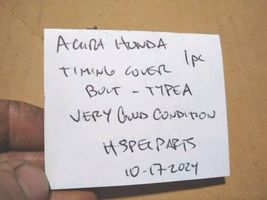 ACURA HONDA
1pc
TIMING COVER
BOLT - TYPE A
VERY GOOD CONDITION
HSPECPARTS
10-17-2024